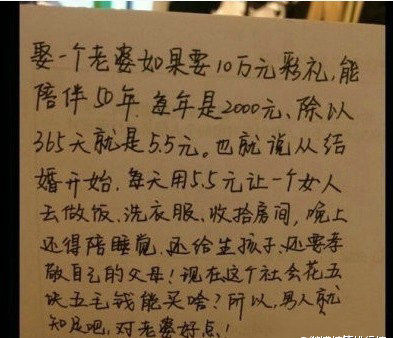 娶一个老婆如果要10万元彩礼,能
陪伴50年.每年是2000元、除以
365天就是5.5元。也就说从结
婚开始,每天用5.5元让一个女人
去做饭、洗衣服、收拾房间,晚上
还得陪睡觉,还给生孩子,还要孝
敬自己的父母!现在这个社会花五
块五毛钱能买啥?所以,男人就
知足吧,对老婆好点!